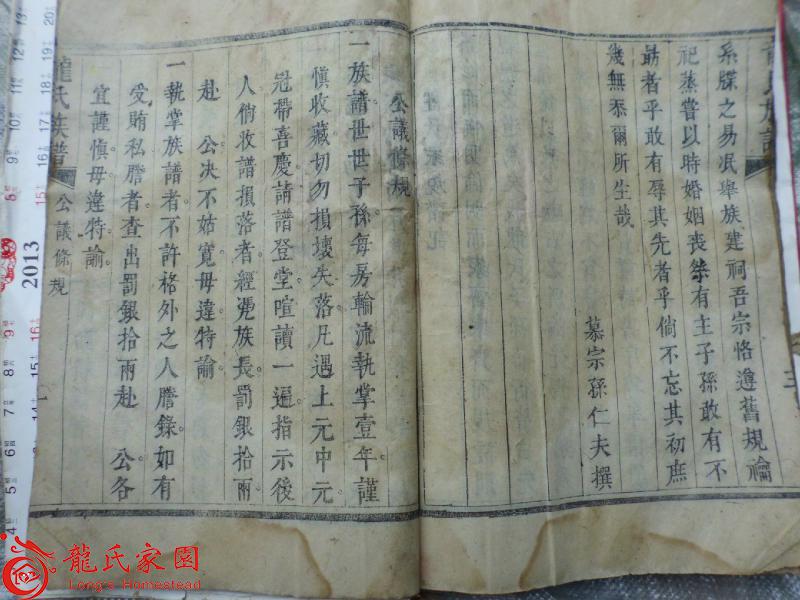 系牒之易泯舉族建祠吾宗恪遵舊規禴
祀蒸嘗以時婚姻喪祭有主子孫敢有不
勗者乎敢有辱其先者乎倘不忘其初庶
幾無忝爾所生哉
慕宗孫仁夫撰
公議條規
一族譜世世子孫每房輪流執掌壹年謹
慎收藏切勿損壞失落凡遇上元中元
冠帶喜慶請譜登堂喧讀一遍指示後
人倘收譜損落者經凴族長罰銀拾兩
赴 公決不姑寬毋違特諭
一執掌族譜者不許格外之人謄錄如有
受賄私謄者查出罰銀拾兩赴 公各
宜謹慎毋違特諭
龍氏族譜
公議條規
2013
龍氏家園
Long's Homestead